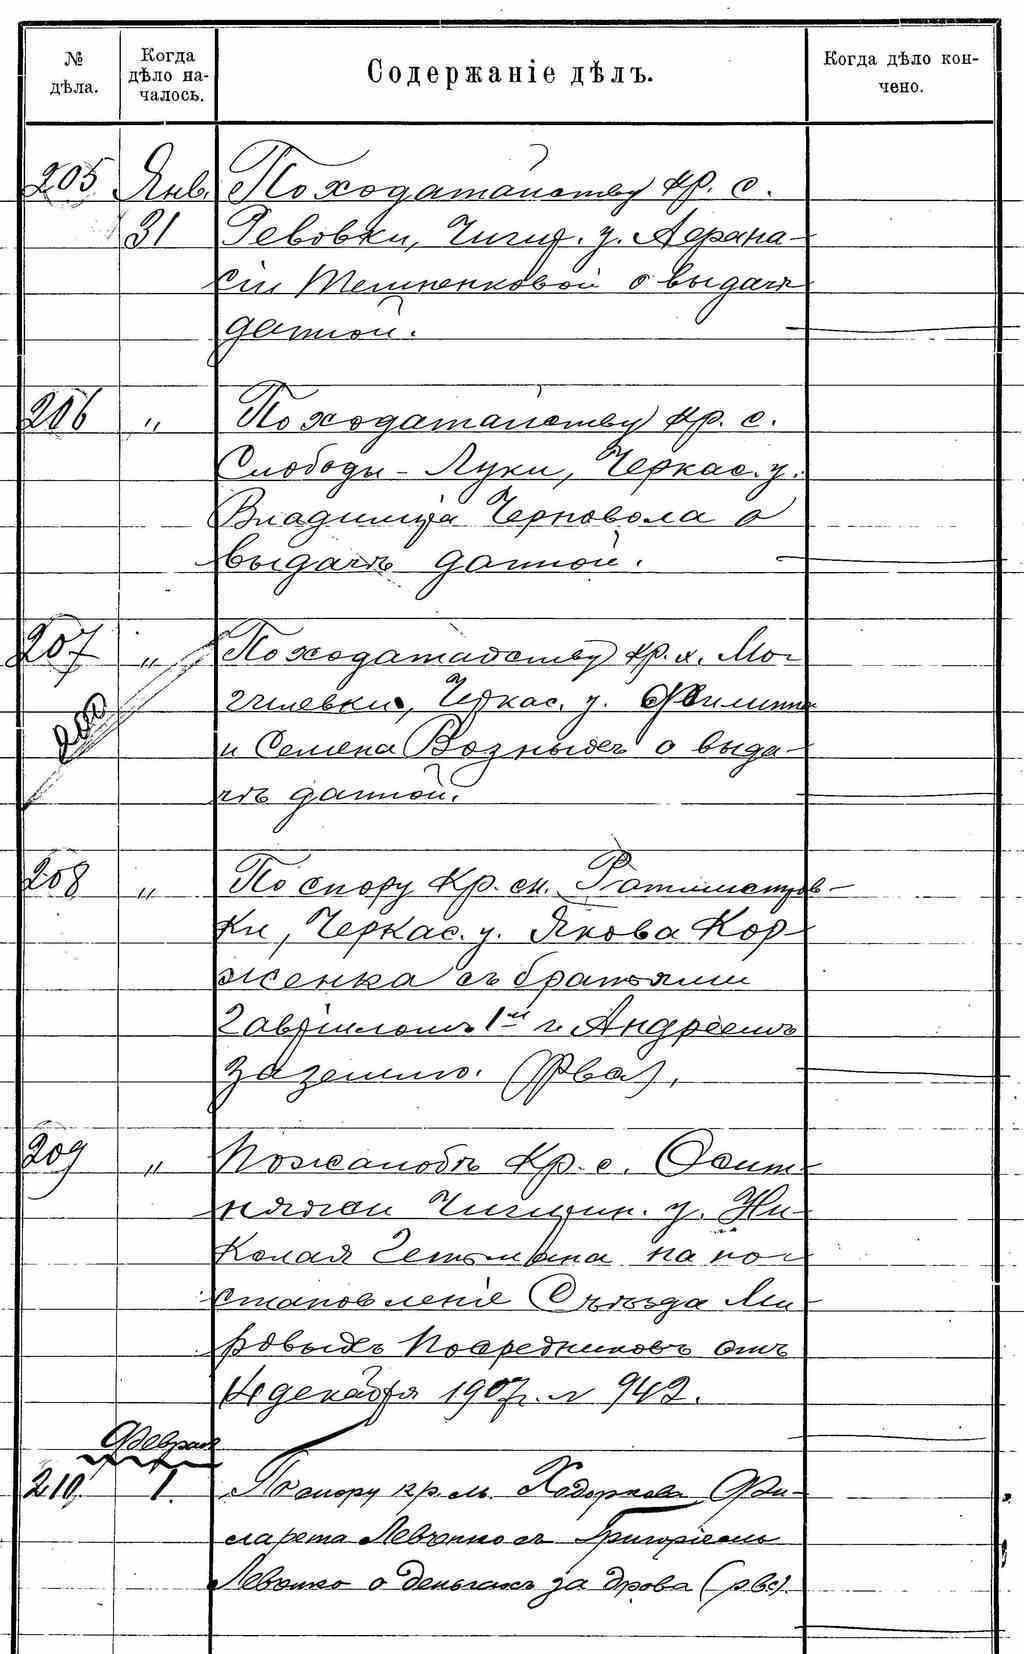 № дѣла.
Когда дѣло началось.
Содержаніе дѣлъ.
Когда дѣло кончено.
205 Янв. По ходатайству кр. с.
31 Ревовки, Чигир. у. Афана-
сіи Темненковой о выдачѣ
данной.
206 " По ходатайству кр. с.
Слободы-Луки, Черкас. у.
Владиміра Черновола о
выдачѣ данной.
207 " По ходатайству кр. д. Мо-
гилевки, Черкас. у. Филиппа
200 и Семена Возныхъ о выда-
чѣ данной.
208 " По спору кр. м. Ротмистров-
ки, Черкас. у. Якова Кор-
женка съ братьями
Гавріиломъ 1м и Андреемъ
за землю. (Рвс).
209 " По жалобѣ кр. с. Осит-
няжки Чигирин. у. Ни-
колая Гетьмана на по-
становленіе Съѣзда Ми-
ровыхъ Посредниковъ отъ
14 декабря 1907 г. № 942.
Февраля
210. 1. По спору кр. м. Ходоркова Фи-
ларета Левченко съ Григоріемъ
Левченко о деньгахъ за дрова (рвс).